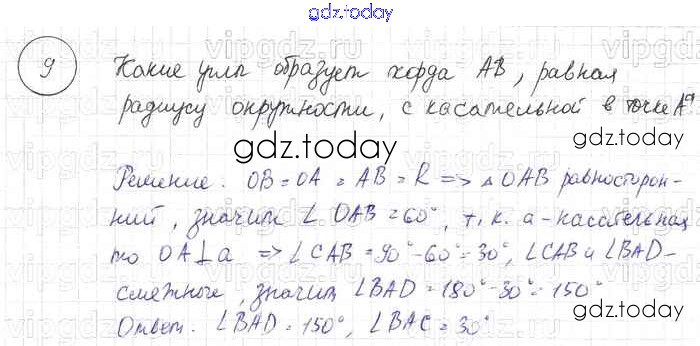 gdz.today
9 Какие углы образует хорда AB, равная
радиусу окружности, с касательной в точке A?
gdz.today
Решение: OB = OA = AB = R => △OAB равносторон-
ний, значит ∠OAB = 60°, т.к. a - касательная
то OA⊥a => ∠CAB = 90° - 60° = 30°, ∠CAB и ∠BAD -
смежные, значит ∠BAD = 180° - 30° = 150°
Ответ: ∠BAD = 150°, ∠BAC = 30°
gdz.today
vipgdz.ru